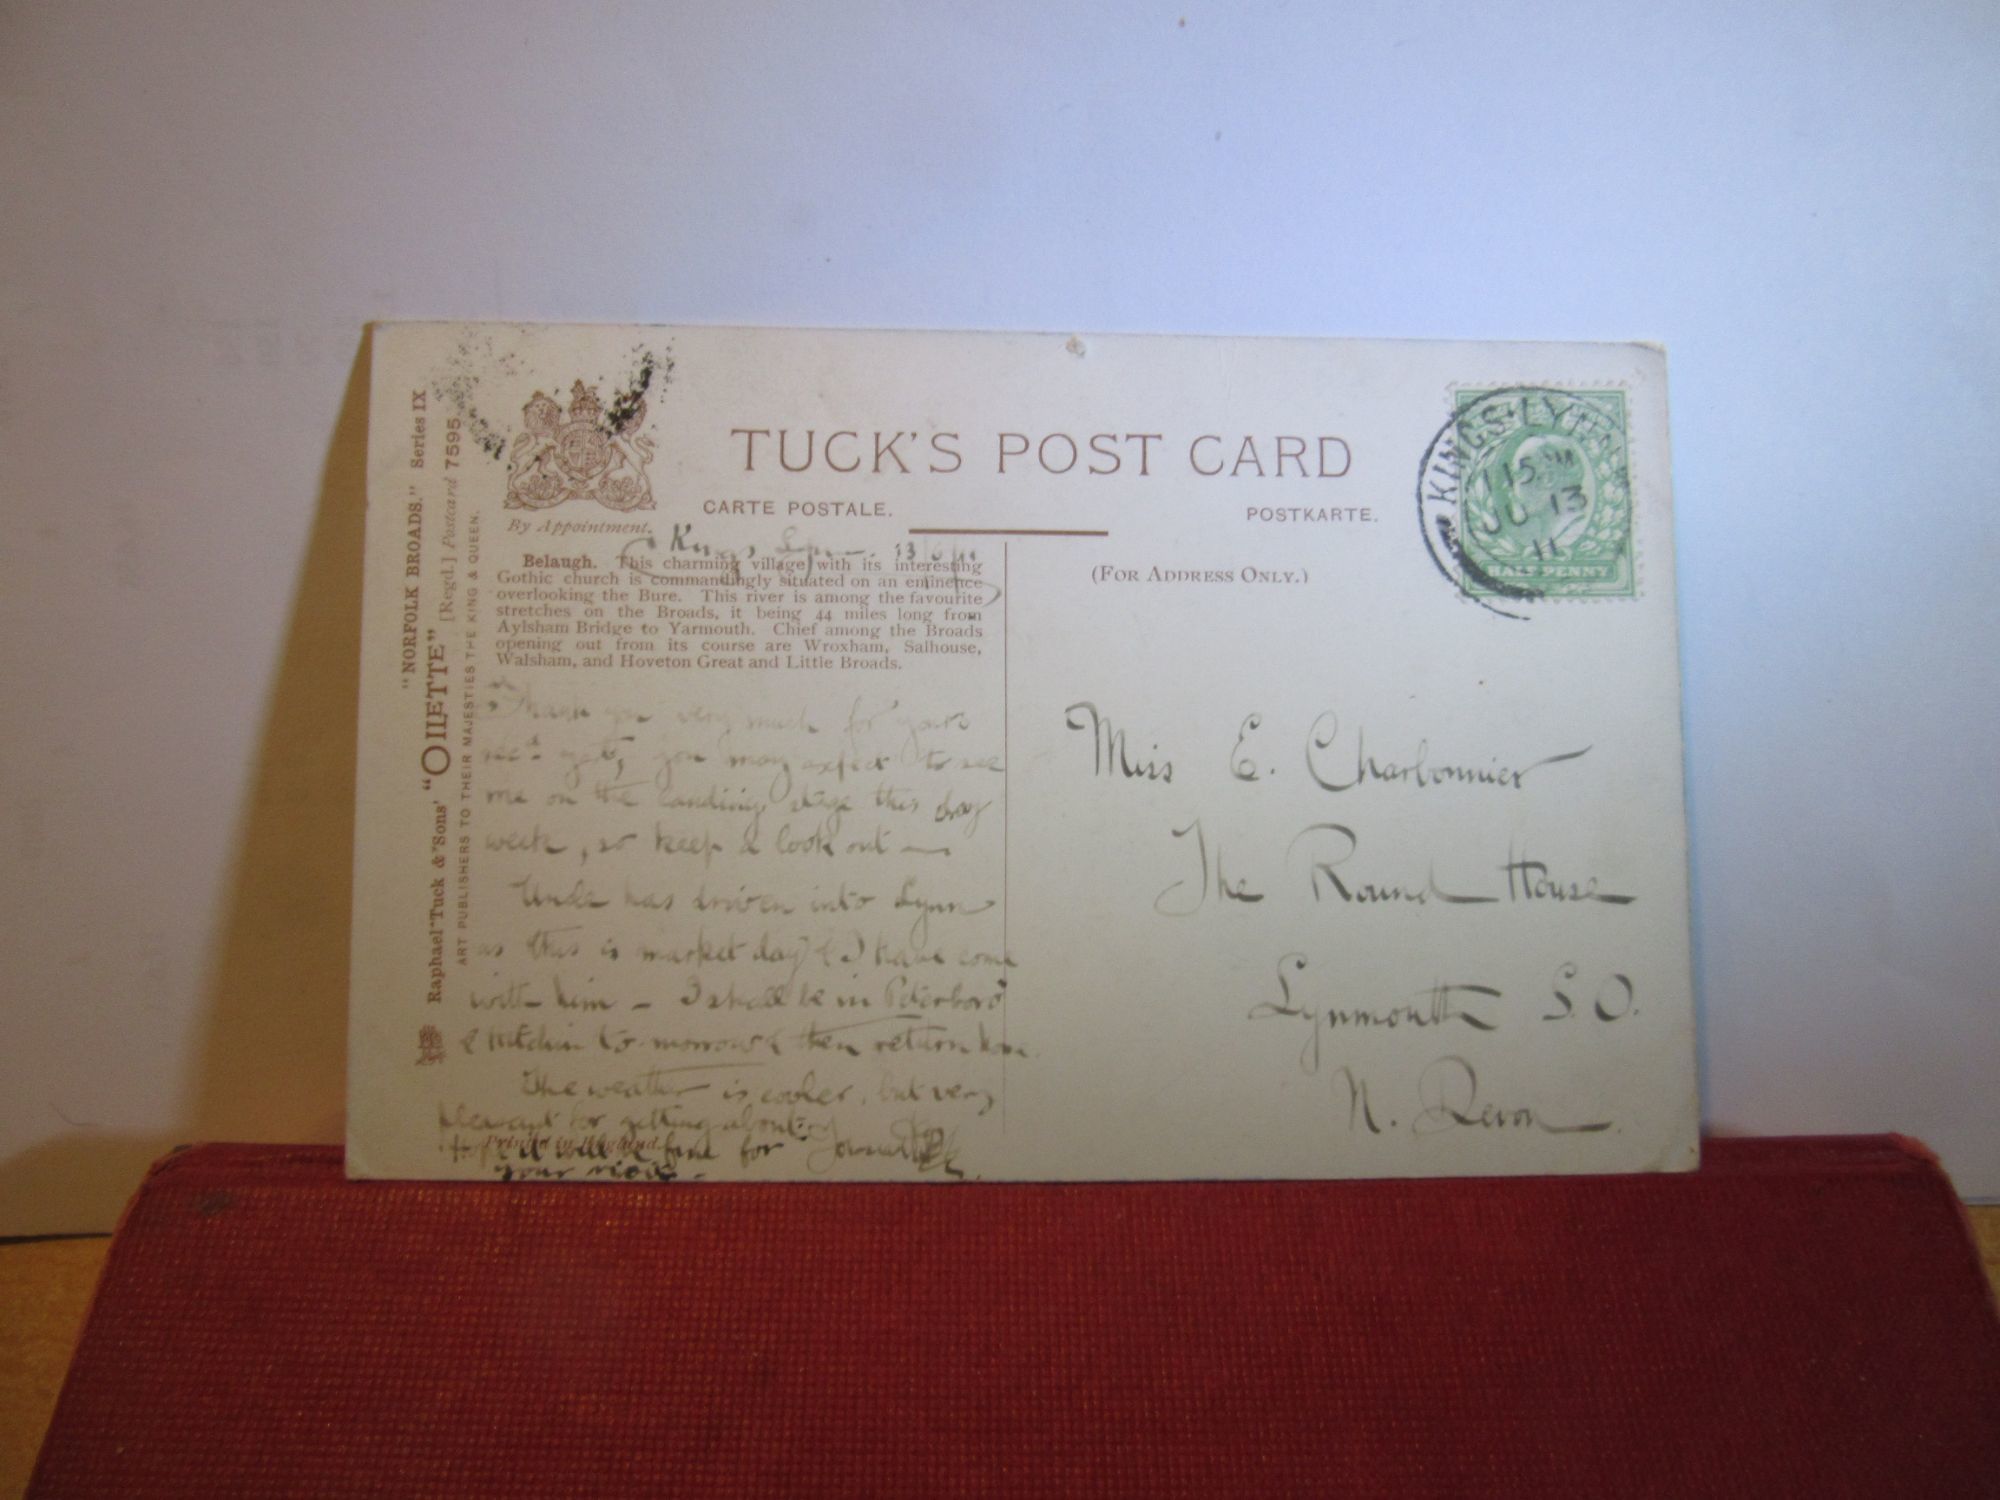 "NORFOLK BROADS." Series IX
Raphael Tuck & Sons' "OILETTE" [Regd.] Postcard 7595.
ART PUBLISHERS TO THEIR MAJESTIES THE KING & QUEEN.
By Appointment.
TUCK'S POST CARD
CARTE POSTALE.
POSTKARTE.
(FOR ADDRESS ONLY.)
KINGS LYNN
JU 13
11
HALF PENNY
Kings Lynn. 13/6/11
Belaugh. This charming village with its interesting
Gothic church is commandingly situated on an eminence
overlooking the Bure. This river is among the favourite
stretches on the Broads, it being 44 miles long from
Aylsham Bridge to Yarmouth. Chief among the Broads
opening out from its course are Wroxham, Salhouse,
Walsham, and Hoveton Great and Little Broads.
Thank you very much for yours
rec'd you may expect to see
me on the landing stage this day
week, so keep a look out —
Uncle has driven into Lynn
as this is market day & I have come
with him - I shall be in Peterboro'
& Hitchin to-morrow & then return home.
The weather is cooler, but very
pleasant for getting about
Hope it will be fine for
your
Printed in England.
Miss E. Charbonnier
The Round House
Lynmouth S.O.
N. Devon